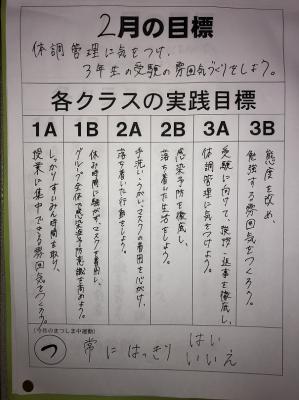 2月の目標
体調管理に気をつけ、
3年生の受験の雰囲気づくりをしよう。
各クラスの実践目標
1A 1B 2A 2B 3A 3B
しっかりすいみん時間を取り、
授業に集中できる雰囲気をつくろう。
休み時間に騒がず、マスクを着用し、
グループ全体で感染予防意識を高めよう。
手洗い・うがい、マスクの着用を心がけ、
落ち着いた行動をしよう。
感染予防を徹底し、
落ち着いた生活をしよう。
受験に向けて、挨拶・返事を徹底し、
体調管理に気をつけよう。
態度を改め、
勉強する雰囲気をつくろう。
(今月のまつしま中運動)
つ 常に はっきり はい
いいえ